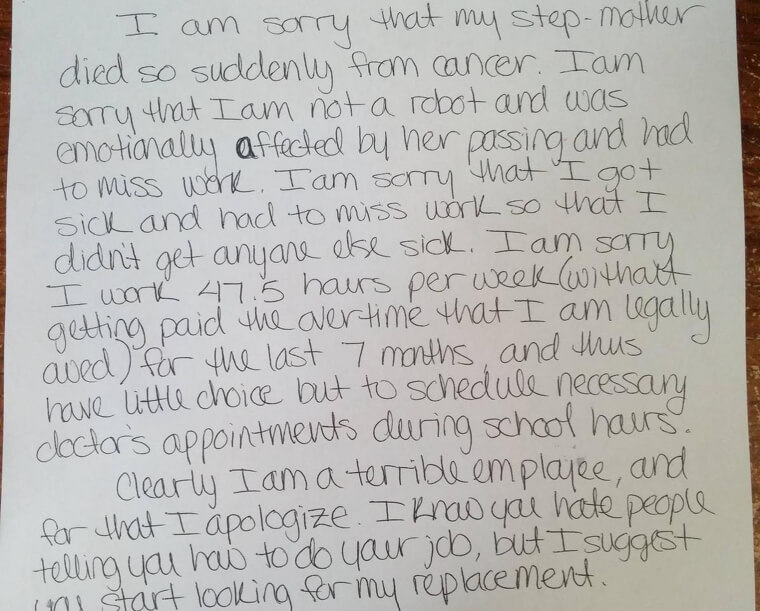 I am sorry that my step-mother
died so suddenly from cancer. I am
sorry that I am not a robot and was
emotionally affected by her passing and had
to miss work. I am sorry that I got
sick and had to miss work so that I
didn't get anyone else sick. I am sorry
I work 47.5 hours per week (without
getting paid the overtime that I am legally
owed) for the last 7 months, and thus
have little choice but to schedule necessary
doctor's appointments during school hours.
Clearly I am a terrible employee, and
for that I apologize. I know you hate people
telling you how to do your job, but I suggest
you start looking for my replacement.